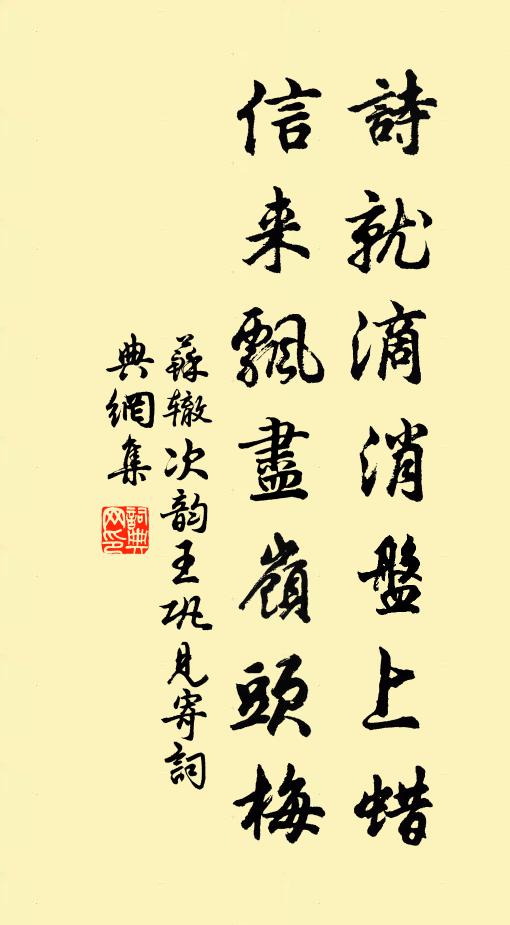 詩就滴消盤上蜡
信来飄盡嶺頭梅
蘇辙次韵王巩見寄詞
典網集
詞典网印